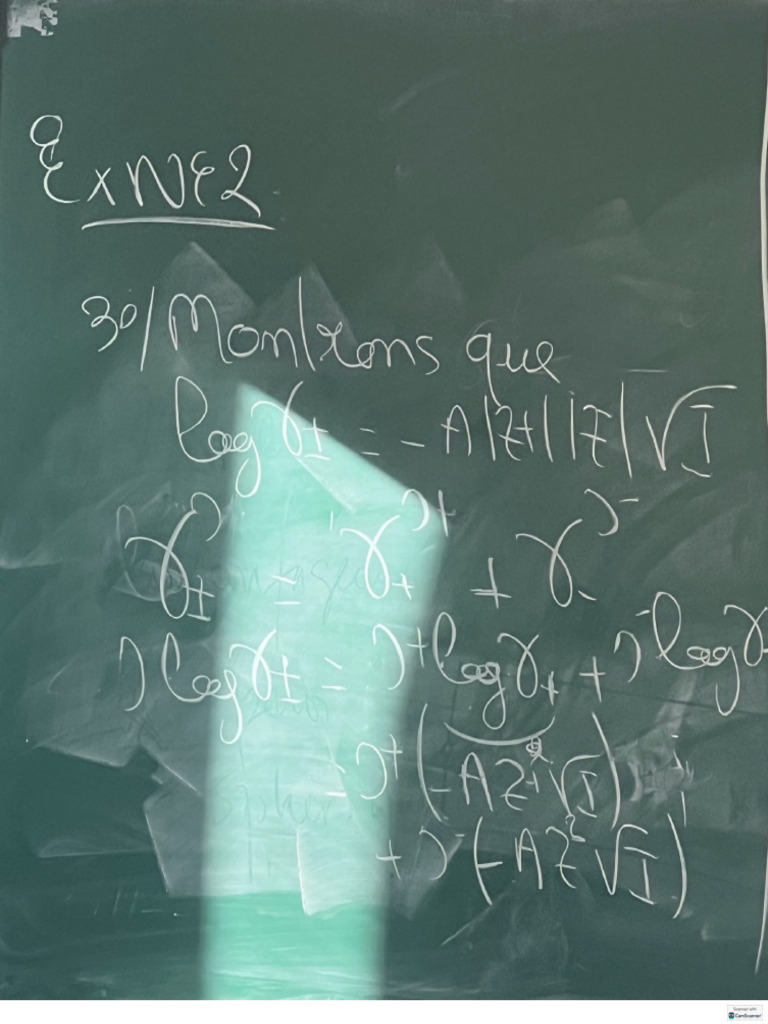 Ex N°2
3°/ Montrons que
log γ± = - A |Z+| |Z-| √I
γ±^ν = γ+^ν+ + γ-^ν-
ν log γ± = ν+ log γ+ + ν- log γ-
= ν+ (-A Z+² √I) +
+ ν- (-A Z-² √I)
Scanned with
CamScanner